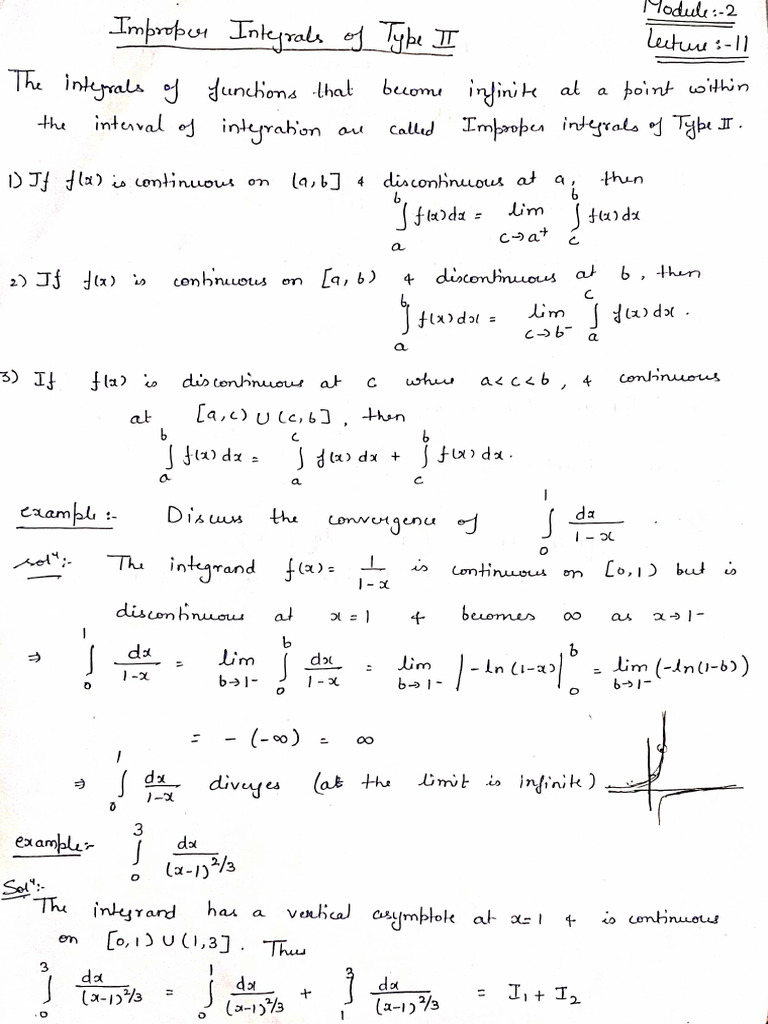 Improper Integrals of Type II
Module:-2
Lecture:-11
The integrals of functions that become infinite at a point within
the interval of integration are called Improper integrals of Type II.
1) If f(x) is continuous on (a,b] & discontinuous at a, then
∫_a^b f(x)dx = lim_{c→a⁺} ∫_c^b f(x)dx
2) If f(x) is continuous on [a,b) & discontinuous at b, then
∫_a^b f(x)dx = lim_{c→b⁻} ∫_a^c f(x)dx.
3) If f(x) is discontinuous at c where a<c<b, & continuous
at [a,c) ∪ (c,b], then
∫_a^b f(x)dx = ∫_a^c f(x)dx + ∫_c^b f(x)dx.
example:- Discuss the convergence of ∫_0^1 dx/(1-x).
solⁿ:- The integrand f(x) = 1/(1-x) is continuous on [0,1) but is
discontinuous at x=1 & becomes ∞ as x→1-
⇒ ∫_0^1 dx/(1-x) = lim_{b→1-} ∫_0^b dx/(1-x) = lim_{b→1-} |-ln(1-x)|_0^b = lim_{b→1-} (-ln(1-b))
= -(-∞) = ∞
⇒ ∫_0^1 dx/(1-x) diverges (as the limit is infinite)
example:- ∫_0^3 dx/(x-1)^{2/3}
Solⁿ:-
The integrand has a vertical asymptote at x=1 & is continuous
on [0,1) ∪ (1,3]. Thus
∫_0^3 dx/(x-1)^{2/3} = ∫_0^1 dx/(x-1)^{2/3} + ∫_1^3 dx/(x-1)^{2/3} = I₁ + I₂